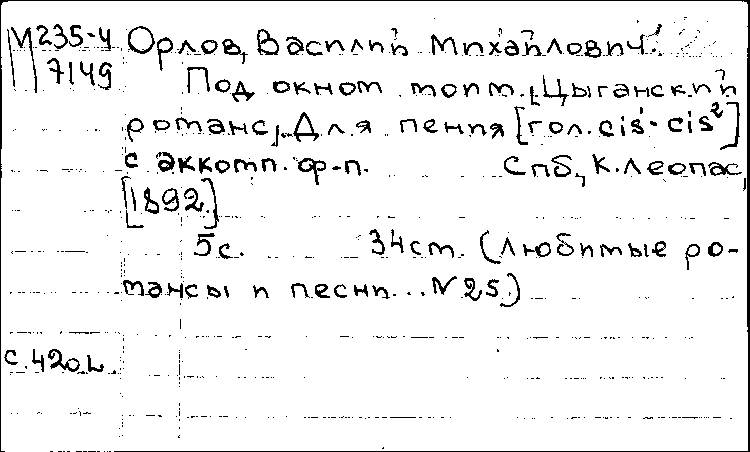 М 235-4 Орлов, Василий Михайлович.
7149 Под окном моим. [Цыганский
романс]. Для пения [гол. cis¹-cis²]
с аккомп. ф-п. Спб., К. Леопас,
[1892.]
5с. 34см. (Любимые ро-
мансы и песни... № 25.)
с.420г.